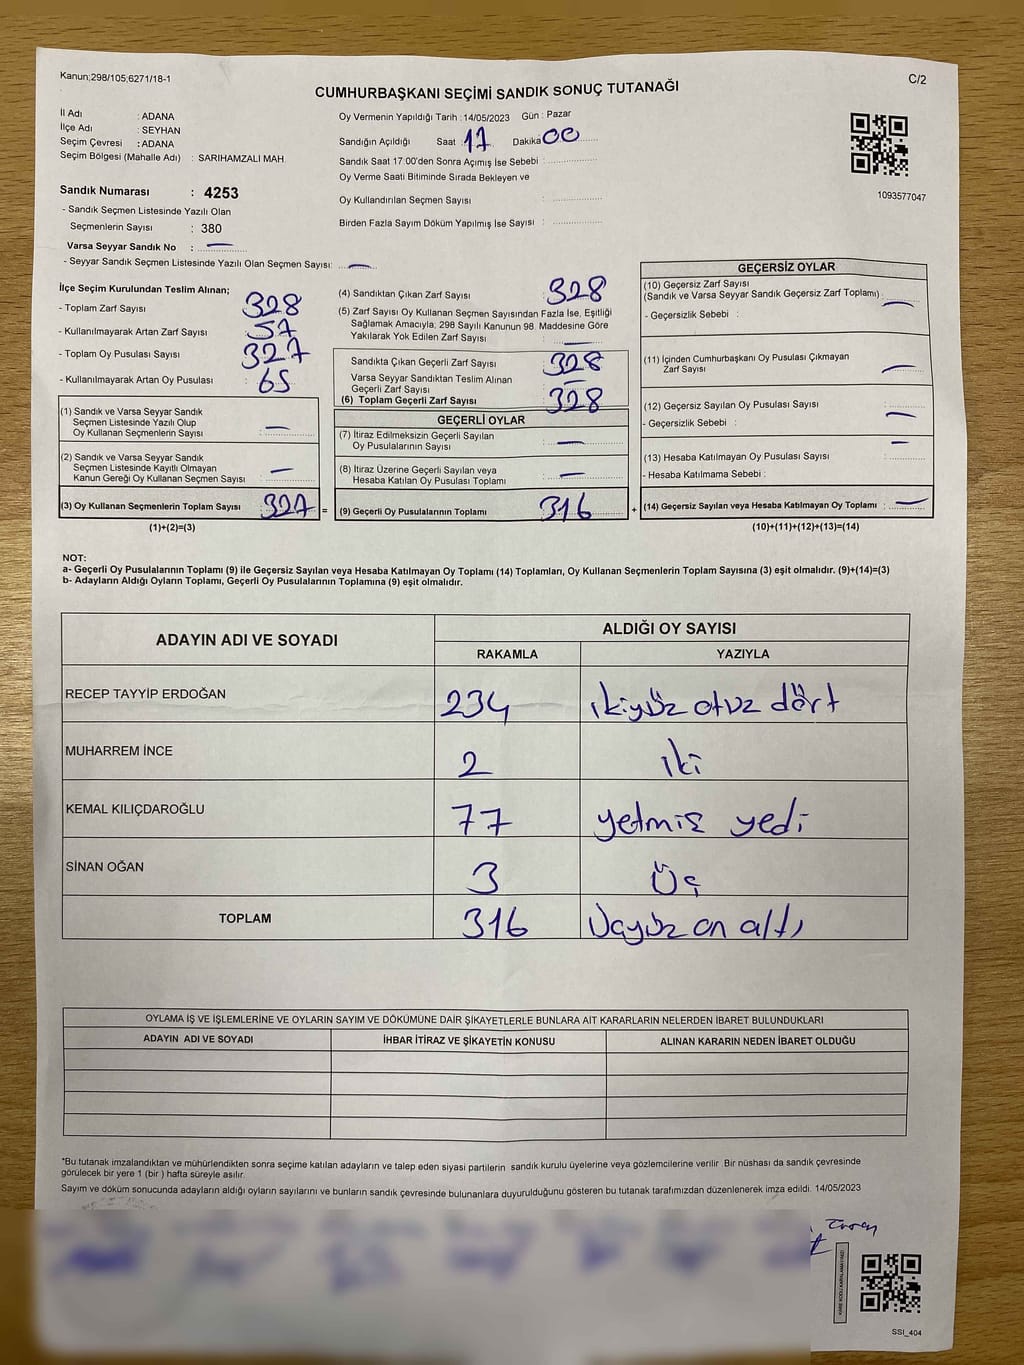 Kanun;298/105,6271/18-1
C/2
CUMHURBAŞKANI SEÇİMİ SANDIK SONUÇ TUTANAĞI
İl Adı : ADANA
İlçe Adı : SEYHAN
Seçim Çevresi : ADANA
Seçim Bölgesi (Mahalle Adı) : SARIHAMZALI MAH.
Sandık Numarası : 4253
- Sandık Seçmen Listesinde Yazılı Olan
Seçmenlerin Sayısı : 380
Varsa Seyyar Sandık No : —
- Seyyar Sandık Seçmen Listesinde Yazılı Olan Seçmen Sayısı: —
Oy Vermenin Yapıldığı Tarih :14/05/2023 Gün : Pazar
Sandığın Açıldığı Saat : 17 Dakika 00
Sandık Saat 17:00'den Sonra Açımış İse Sebebi :
Oy Verme Saati Bitiminde Sırada Bekleyen ve
Oy Kullandırılan Seçmen Sayısı :
Birden Fazla Sayım Döküm Yapılmış İse Sayısı :
1093577047
İlçe Seçim Kurulundan Teslim Alınan;
- Toplam Zarf Sayısı : 328
- Kullanılmayarak Artan Zarf Sayısı : 57
- Toplam Oy Pusulası Sayısı : 327
- Kullanılmayarak Artan Oy Pusulası : 65
(1) Sandık ve Varsa Seyyar Sandık
Seçmen Listesinde Yazılı Olup
Oy Kullanan Seçmenlerin Sayısı : —
(2) Sandık ve Varsa Seyyar Sandık
Seçmen Listesinde Kayıtlı Olmayan
Kanun Gereği Oy Kullanan Seçmen Sayısı : —
(3) Oy Kullanan Seçmenlerin Toplam Sayısı : 327 =
(1)+(2)=(3)
(4) Sandıktan Çıkan Zarf Sayısı : 328
(5) Zarf Sayısı Oy Kullanan Seçmen Sayısından Fazla İse, Eşitliği
Sağlamak Amacıyla; 298 Sayılı Kanunun 98. Maddesine Göre
Yakılarak Yok Edilen Zarf Sayısı : —
Sandıkta Çıkan Geçerli Zarf Sayısı : 328
Varsa Seyyar Sandıktan Teslim Alınan
Geçerli Zarf Sayısı : —
(6) Toplam Geçerli Zarf Sayısı : 328
GEÇERLİ OYLAR
(7) İtiraz Edilmeksizin Geçerli Sayılan
Oy Pusulalarının Sayısı : —
(8) İtiraz Üzerine Geçerli Sayılan veya
Hesaba Katılan Oy Pusulası Toplamı : —
(9) Geçerli Oy Pusulalarının Toplamı : 316 +
GEÇERSİZ OYLAR
(10) Geçersiz Zarf Sayısı
(Sandık ve Varsa Seyyar Sandık Geçersiz Zarf Toplamı) : —
- Geçersizlik Sebebi :
(11) İçinden Cumhurbaşkanı Oy Pusulası Çıkmayan
Zarf Sayısı : —
(12) Geçersiz Sayılan Oy Pusulası Sayısı : —
- Geçersizlik Sebebi :
(13) Hesaba Katılmayan Oy Pusulası Sayısı : —
- Hesaba Katılmama Sebebi :
(14) Geçersiz Sayılan veya Hesaba Katılmayan Oy Toplamı : —
(10)+(11)+(12)+(13)=(14)
NOT:
a- Geçerli Oy Pusulalarının Toplamı (9) ile Geçersiz Sayılan veya Hesaba Katılmayan Oy Toplamı (14) Toplamları, Oy Kullanan Seçmenlerin Toplam Sayısına (3) eşit olmalıdır. (9)+(14)=(3)
b- Adayların Aldığı Oyların Toplamı, Geçerli Oy Pusulalarının Toplamına (9) eşit olmalıdır.
ADAYIN ADI VE SOYADI
ALDIĞI OY SAYISI
RAKAMLA YAZIYLA
RECEP TAYYİP ERDOĞAN 234 ikiyüz otuz dört
MUHARREM İNCE 2 iki
KEMAL KILIÇDAROĞLU 77 yetmiş yedi
SİNAN OĞAN 3 Üç
TOPLAM 316 Üçyüz on altı
OYLAMA İŞ VE İŞLEMLERİNE VE OYLARIN SAYIM VE DÖKÜMÜNE DAİR ŞİKAYETLERLE BUNLARA AİT KARARLARIN NELERDEN İBARET BULUNDUKLARI
ADAYIN ADI VE SOYADI İHBAR İTİRAZ VE ŞİKAYETİN KONUSU ALINAN KARARIN NEDEN İBARET OLDUĞU
*Bu tutanak imzalandıktan ve mühürlendikten sonra seçime katılan adayların ve talep eden siyasi partilerin sandık kurulu üyelerine veya gözlemcilerine verilir .Bir nüshası da sandık çevresinde
görülecek bir yere 1 (bir ) hafta süreyle asılır.
Sayım ve döküm sonucunda adayların aldığı oyların sayılarını ve bunların sandık çevresinde bulunanlara duyurulduğunu gösteren bu tutanak tarafımızdan düzenlenerek imza edildi. 14/05/2023
SSİ_404